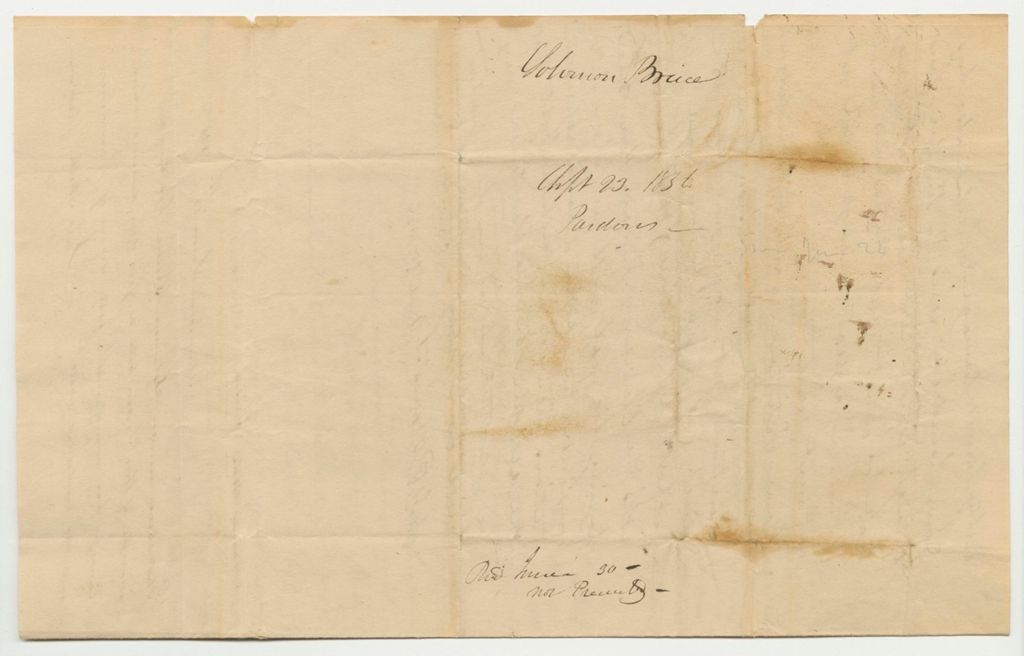 Solomon Bruce
Sept 23. 1836
Pardons
Recd June 30
not Presented